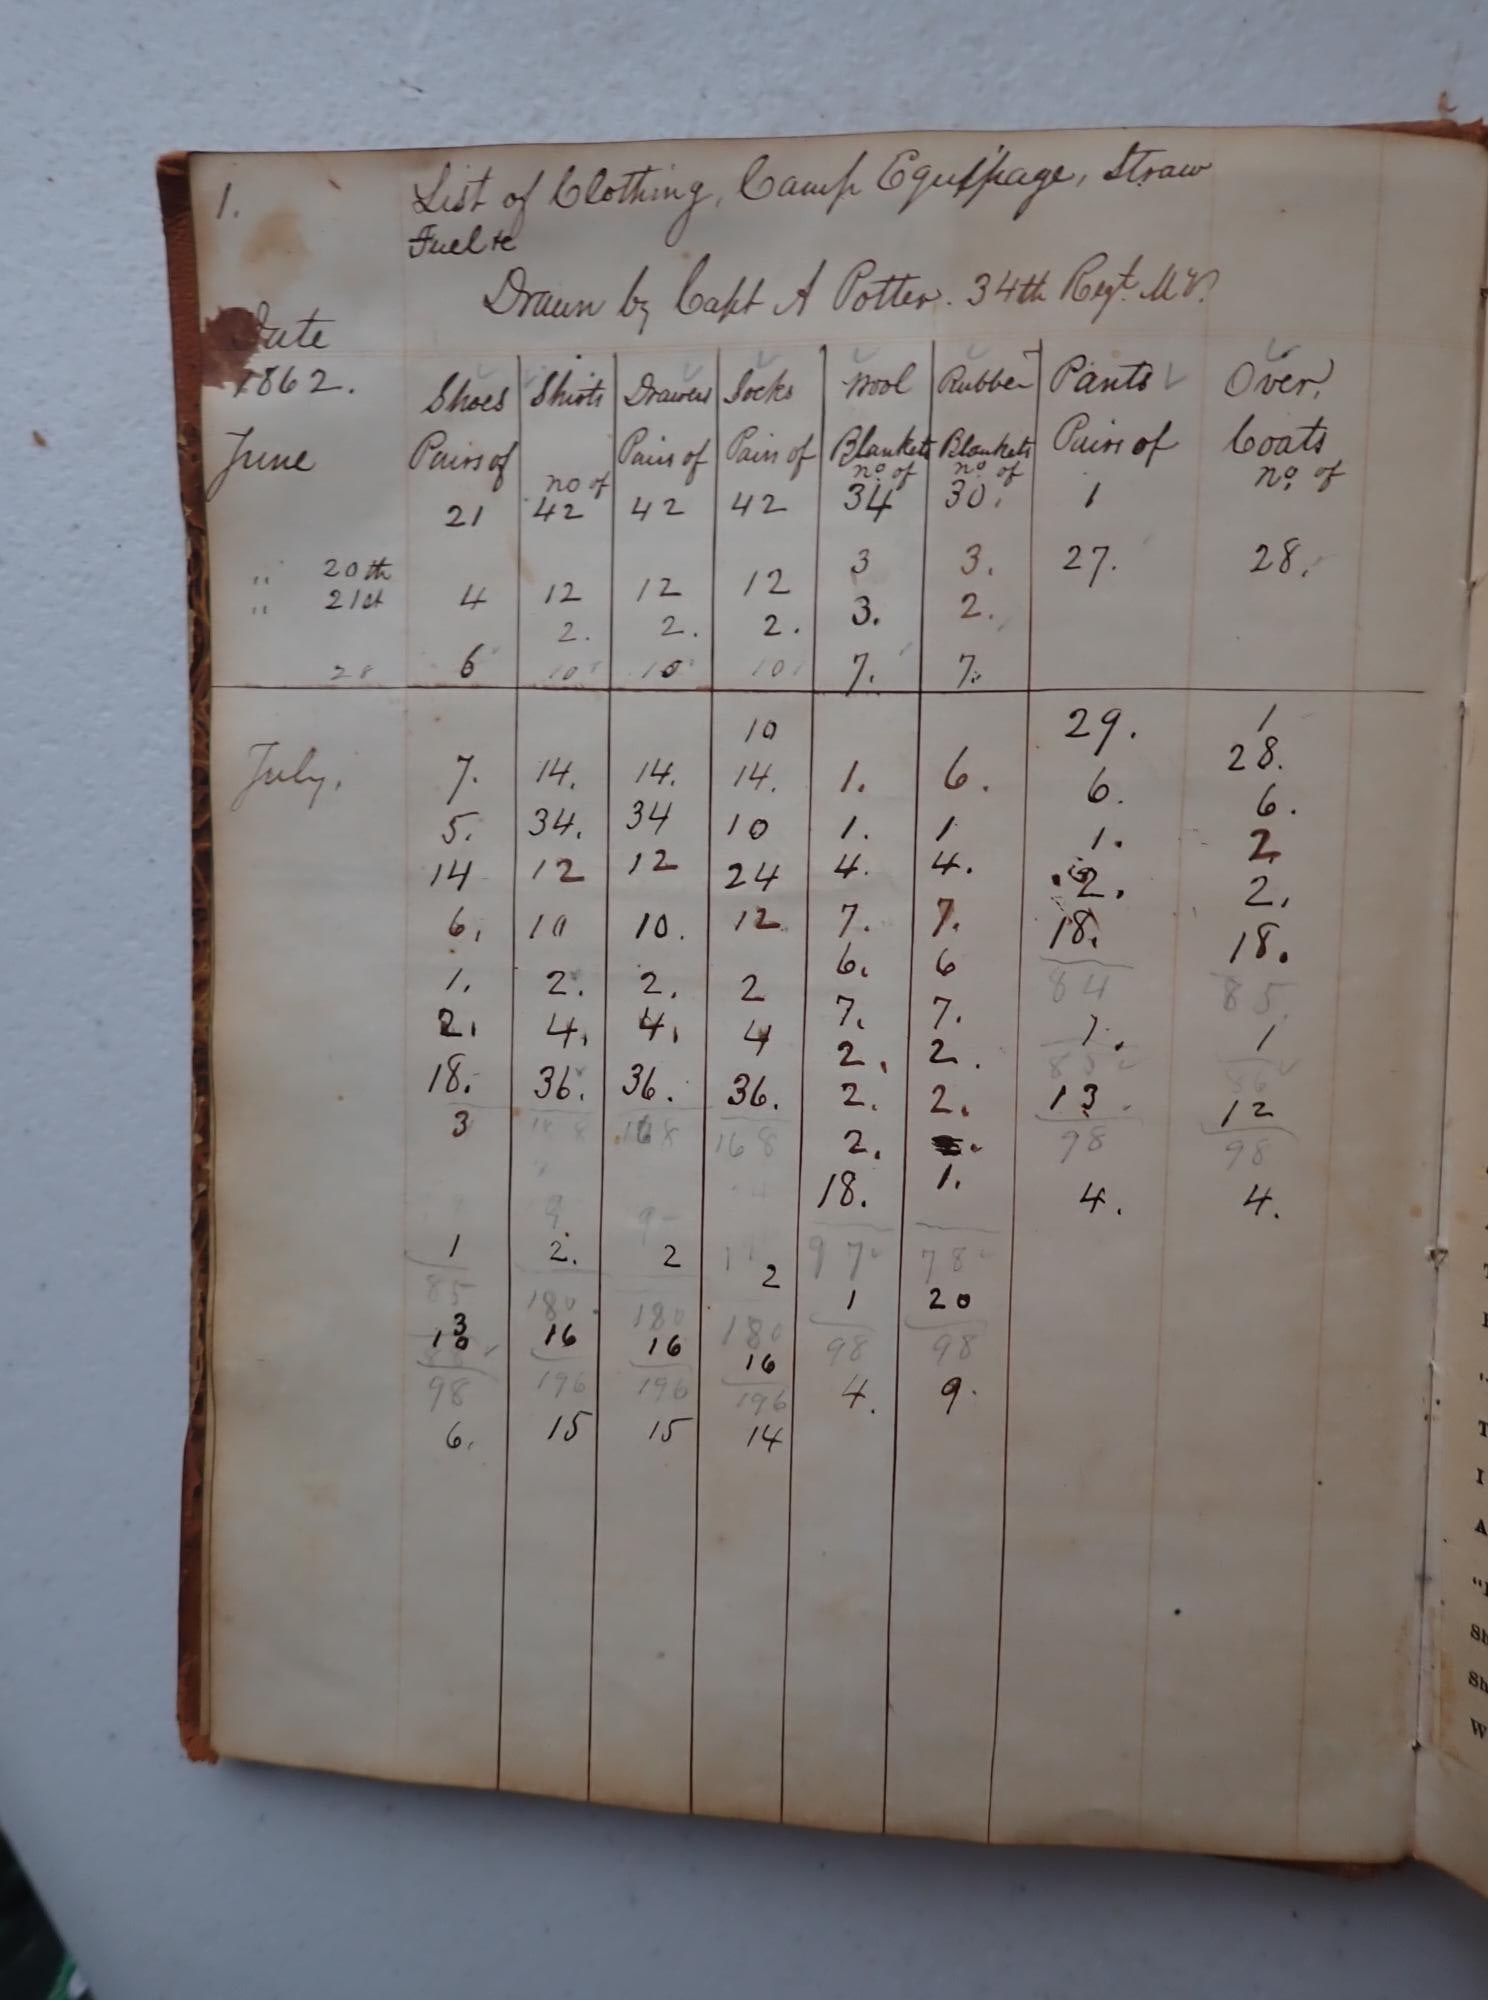 1. List of Clothing, Camp Equipage, Straw
Fuel &c
Drawn by Capt A Potter. 34th Regt. M V.
Date
1862. Shoes Shirts Drawers Socks Wool Rubber Pants Over
June Pairs of no of Pairs of Pairs of Blankets no of Blankets no of Pairs of Coats no. of
21 42 42 42 34 30. 1
" 20th 3 3. 27. 28.
" 21st 4 12 12 12 3. 2.
2. 2. 2.
28 6 10 10 10 7. 7.
10 29. 1
28.
July. 7. 14. 14. 14. 1. 6. 6. 6.
5. 34. 34 10 1. 1 1. 2
14 12 12 24 4. 4. 2. 2.
6. 10 10. 12 7. 7. 18. 18.
6. 6 84 85.
1. 2. 2. 2 7. 7. 1. 1
2. 4. 4. 4 2. 2.
18. 36. 36. 36. 2. 2. 13 12
3 168 168 2. 98 98
18. 1. 4. 4.
9 9
1 2. 2 2 97 78
85 180 180 180 1 20
3
10 16 16 16 98 98
98 196 196 196 4. 9.
6. 15 15 14
T
I
A
Sh
Sh
W